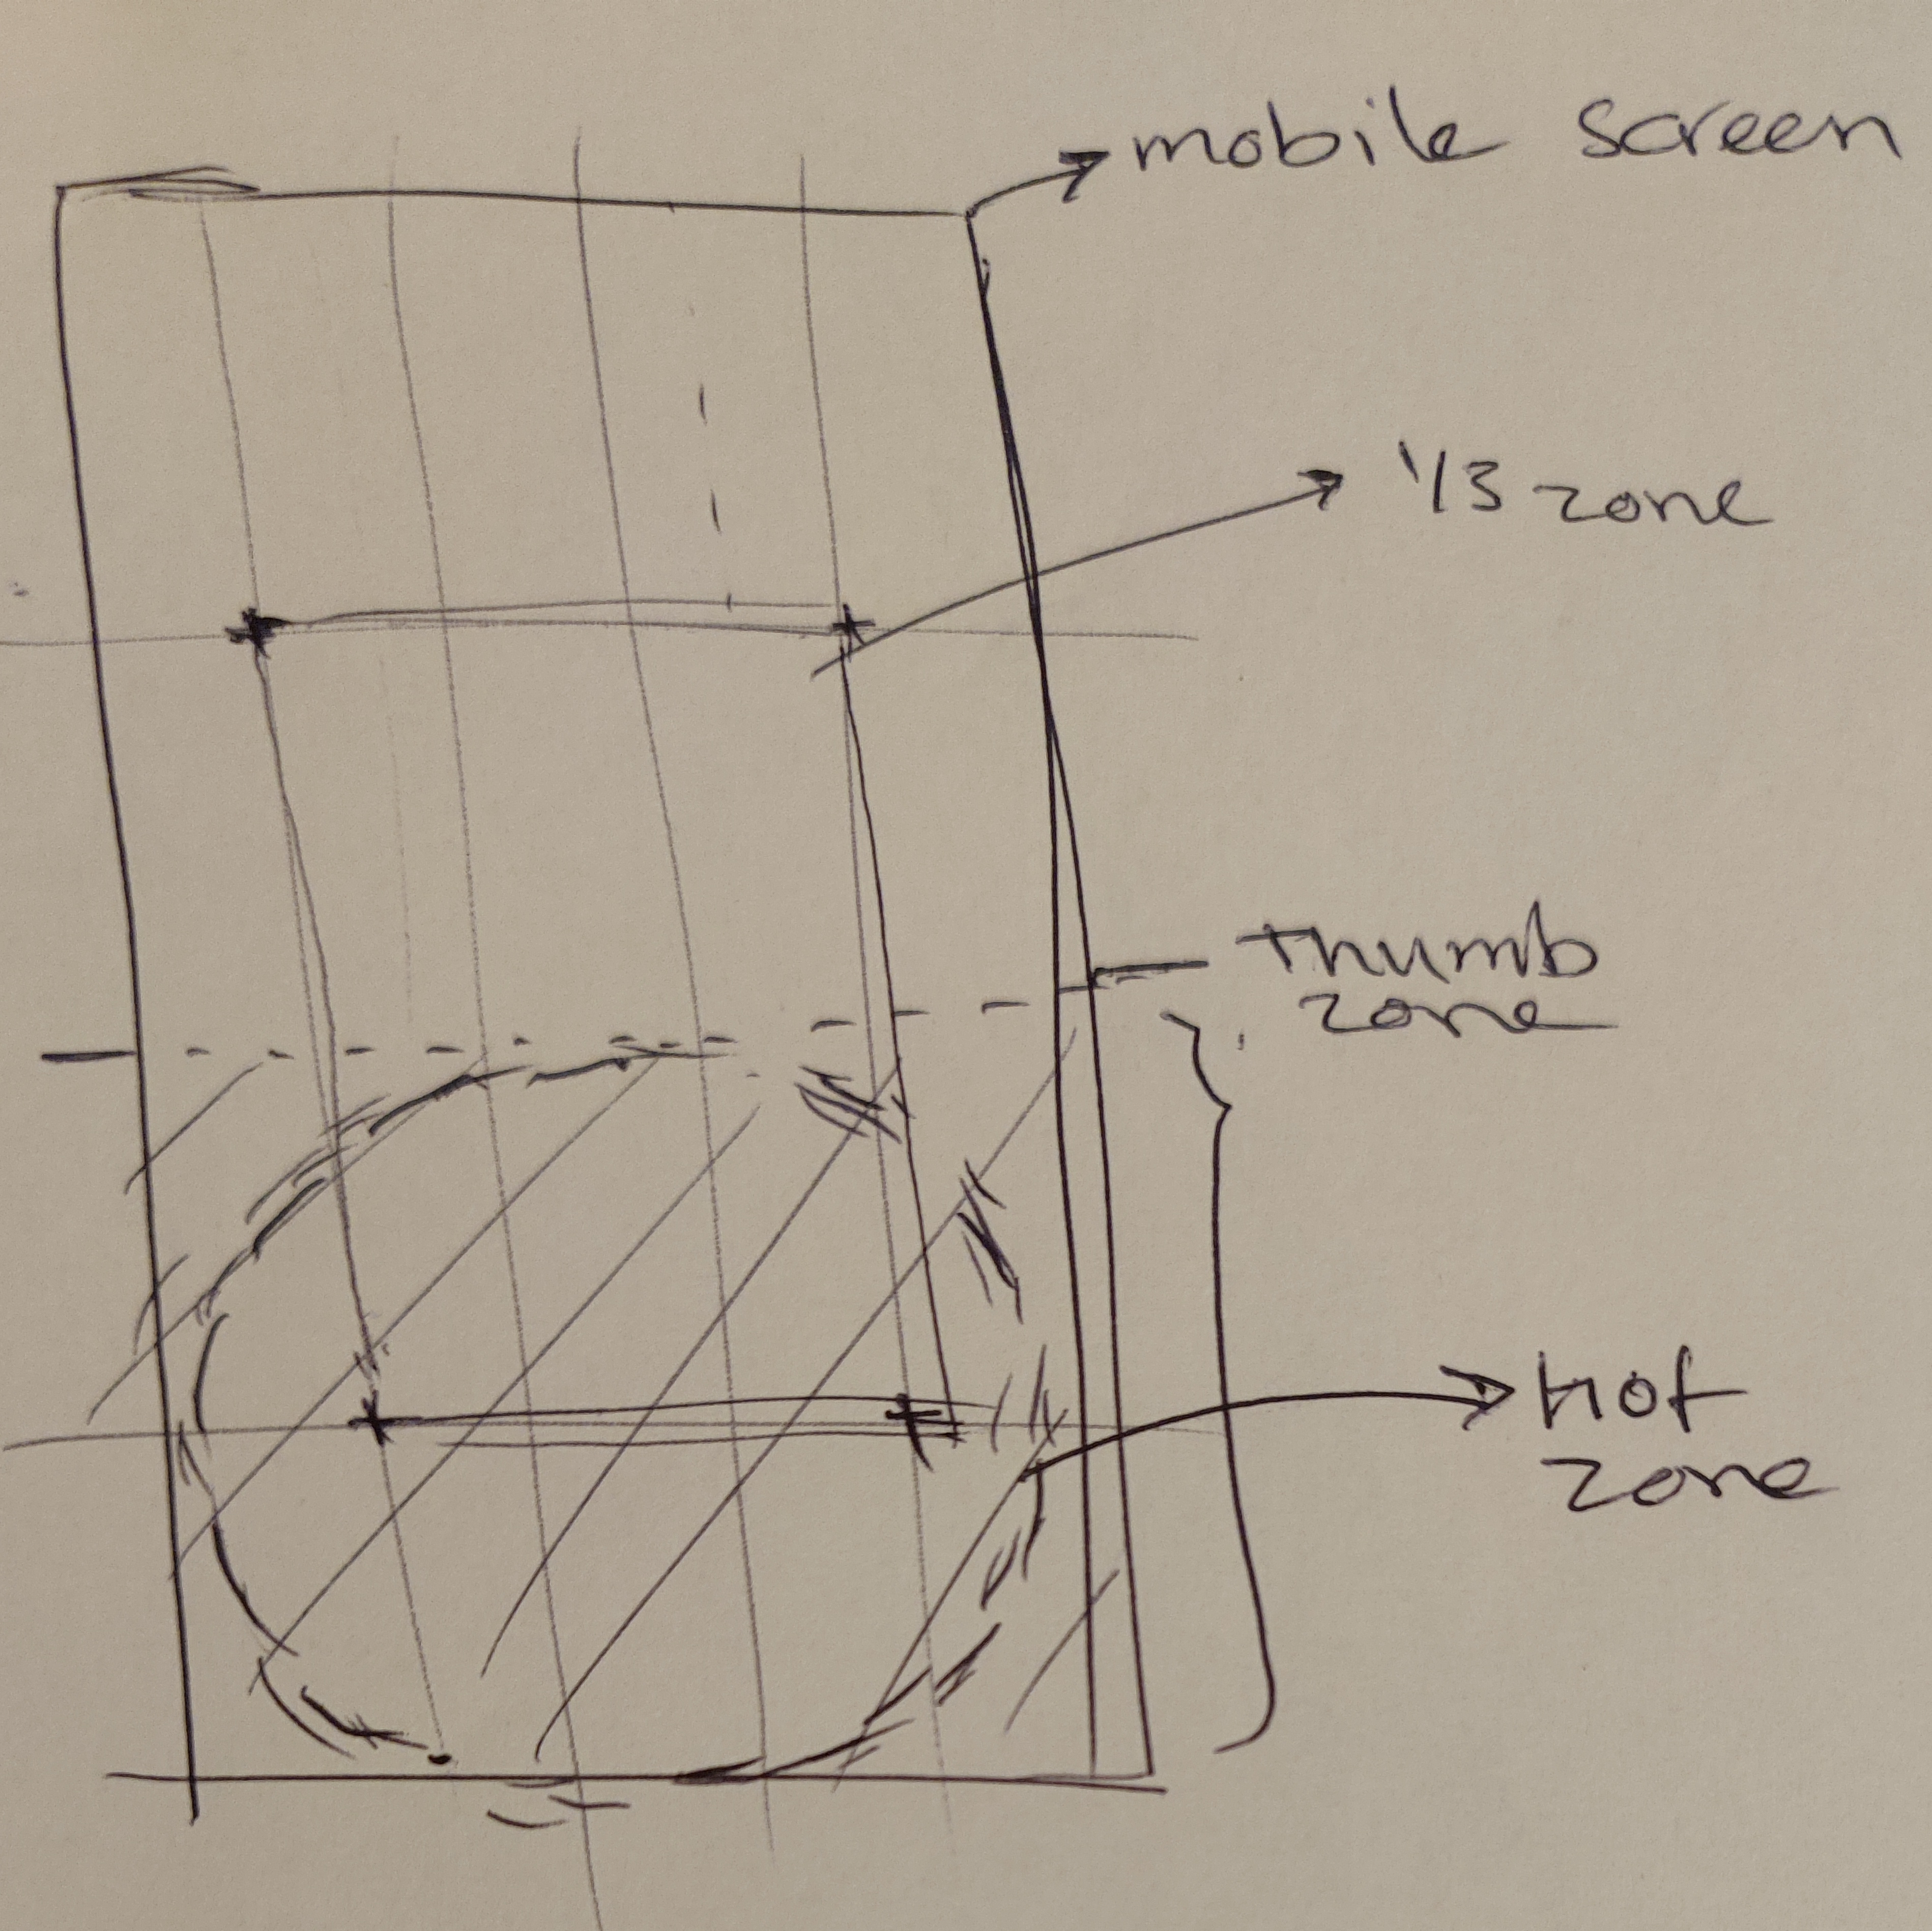 mobile screen
1/3 zone
Thumb
zone
Hot
zone